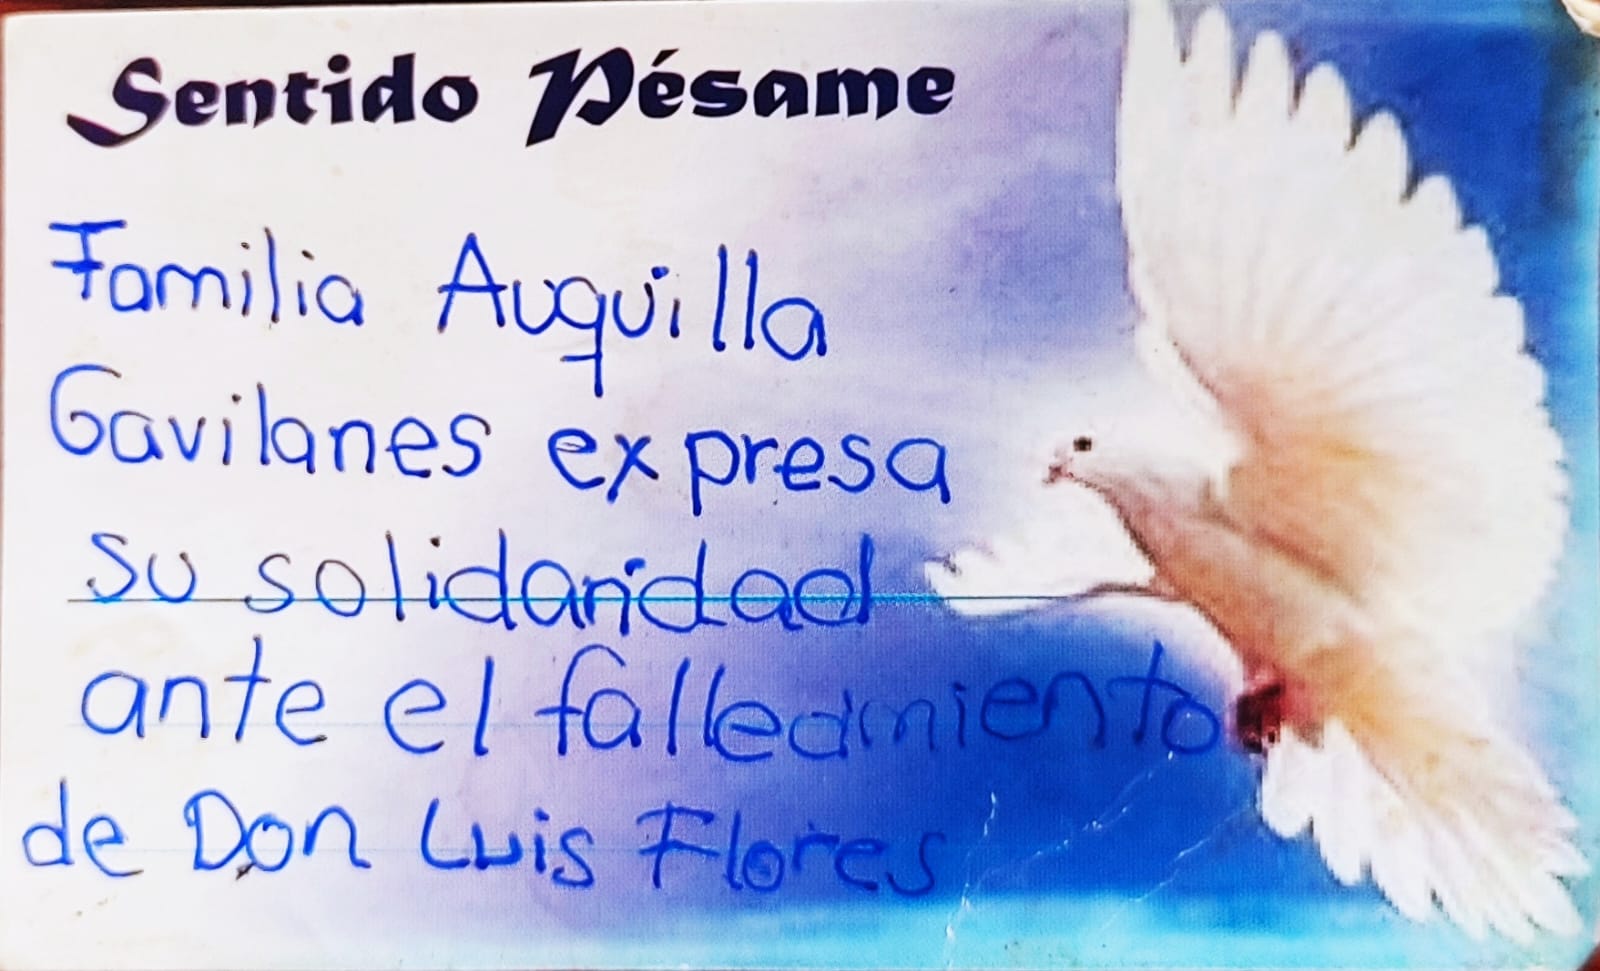 Sentido Pésame
Familia Auquilla
Gavilanes expresa
su solidaridad
ante el fallecimiento
de Don Luis Flores